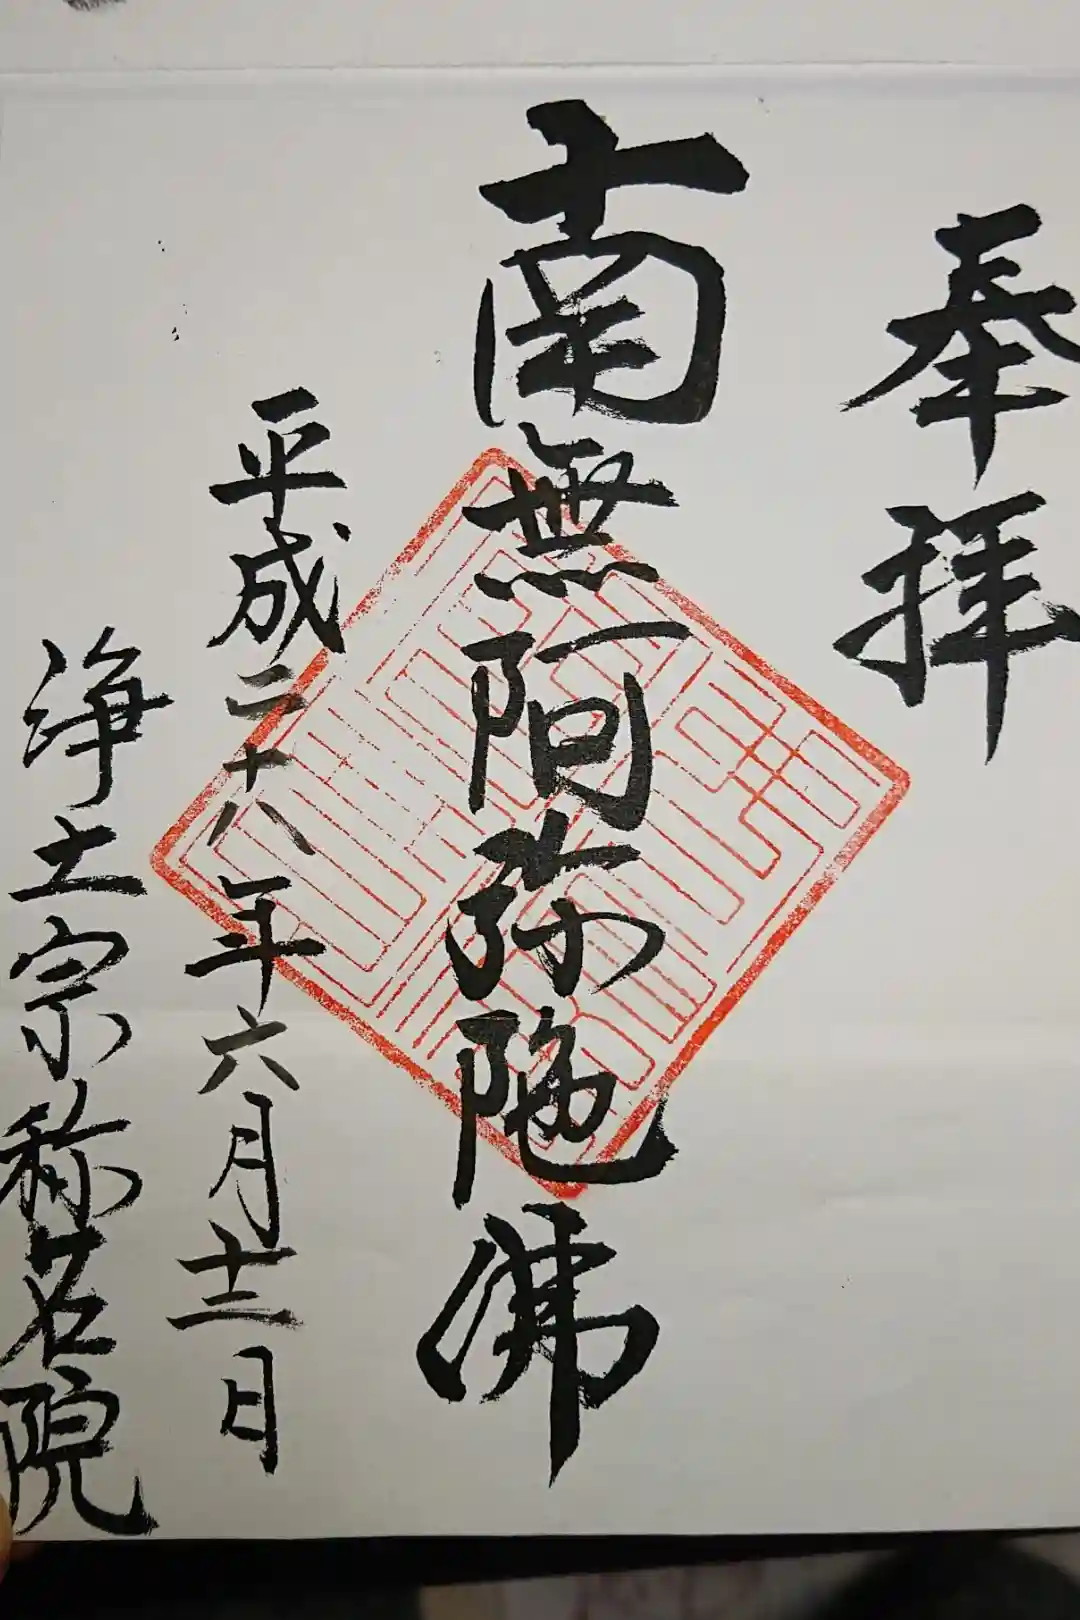 奉拝
南無阿弥陀佛
平成二十八年六月十二日
浄土宗称名院